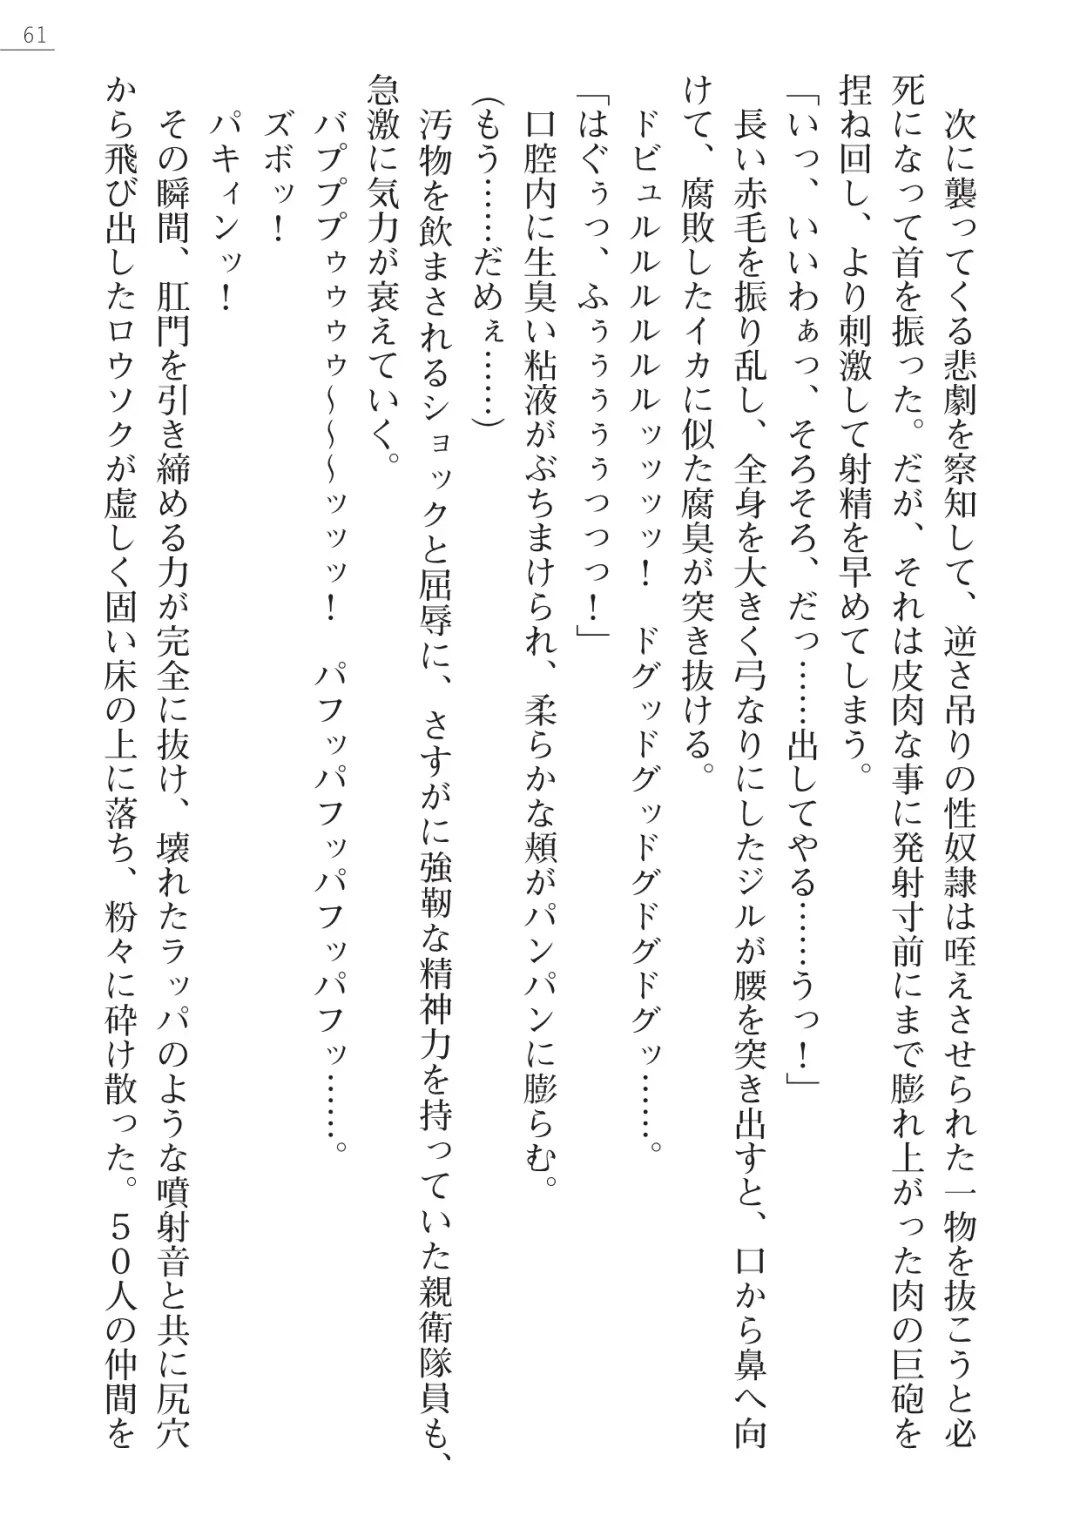 61
次に襲ってくる悲劇を察知して、逆さ吊りの性奴隷は咥えさせられた一物を抜こうと必
死になって首を振った。だが、それは皮肉な事に発射寸前にまで膨れ上がった肉の巨砲を
捏ね回し、より刺激して射精を早めてしまう。
「いっ、いいわぁっ、そろそろ、だっ……出してやる……うっ！」
長い赤毛を振り乱し、全身を大きく弓なりにしたジルが腰を突き出すと、口から鼻へ向
けて、腐敗したイカに似た腐臭が突き抜ける。
ドビュルルルルルルッッッッ！　ドグッドグッドグドグドグッ……。
「はぐぅっ、ふぅぅぅぅっっっ！」
口腔内に生臭い粘液がぶちまけられ、柔らかな頬がパンパンに膨らむ。
（もう……だめぇ……）
汚物を飲まされるショックと屈辱に、さすがに強靭な精神力を持っていた親衛隊員も、
急激に気力が衰えていく。
バププププゥゥゥゥ～～～ッッッ！　パフッパフッパフッパフッ……。
ズボッ！
パキィンッ！
その瞬間、肛門を引き締める力が完全に抜け、壊れたラッパのような噴射音と共に尻穴
から飛び出したロウソクが虚しく固い床の上に落ち、粉々に砕け散った。５０人の仲間を